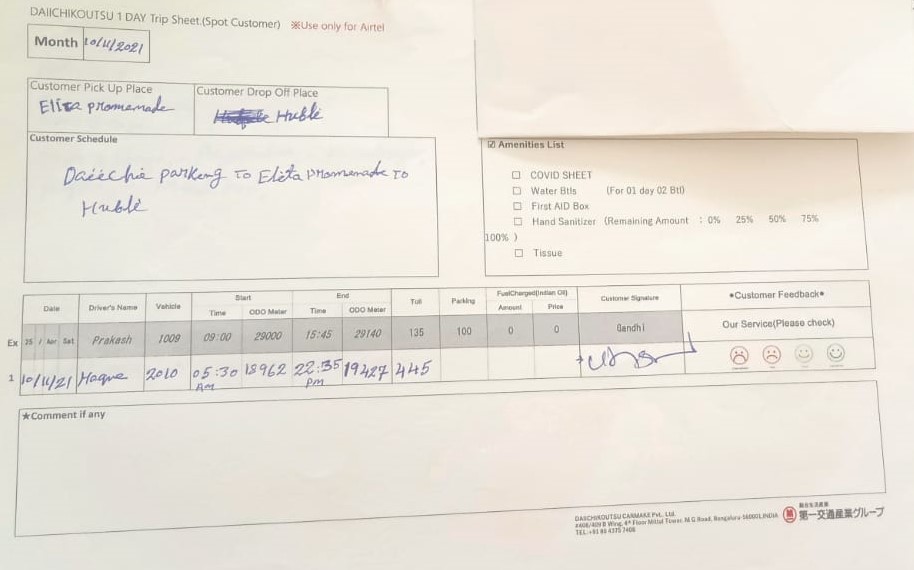 DAIICHIKOUTSU 1 DAY Trip Sheet.(Spot Customer) ※Use only for Airtel
Month 10/11/2021
Customer Pick Up Place
Elita promenade
Customer Drop Off Place
Hubli
Customer Schedule
Daiichi parking To Elita Promenade To
Hubli
☑ Amenities List
☐ COVID SHEET
☐ Water Btls (For 01 day 02 Btl)
☐ First AID Box
☐ Hand Sanitizer (Remaining Amount : 0% 25% 50% 75%
100% )
☐ Tissue
Date Driver's Name Vehicle Start End Toll Parking FuelCharged(Indian Oil) Customer Signature
Time ODO Meter Time ODO Meter Amount Price
●Customer Feedback●
Our Service(Please check)
Ex 25 / Apr Sat Prakash 1009 09:00 29000 15:45 29140 135 100 0 0 Gandhi
1 10/11/21 Haque 2010 05:30 AM 18962 22:35 pm 19427 445
★Comment if any
DAIICHIKOUTSU CARMAKE Pvt. Ltd.
#408/409 B Wing, 4th Floor Mittal Tower, M.G Road, Bengaluru-560001,INDIA
TEL:+91 80 4375 7408
総合生活産業
第一交通産業グループ